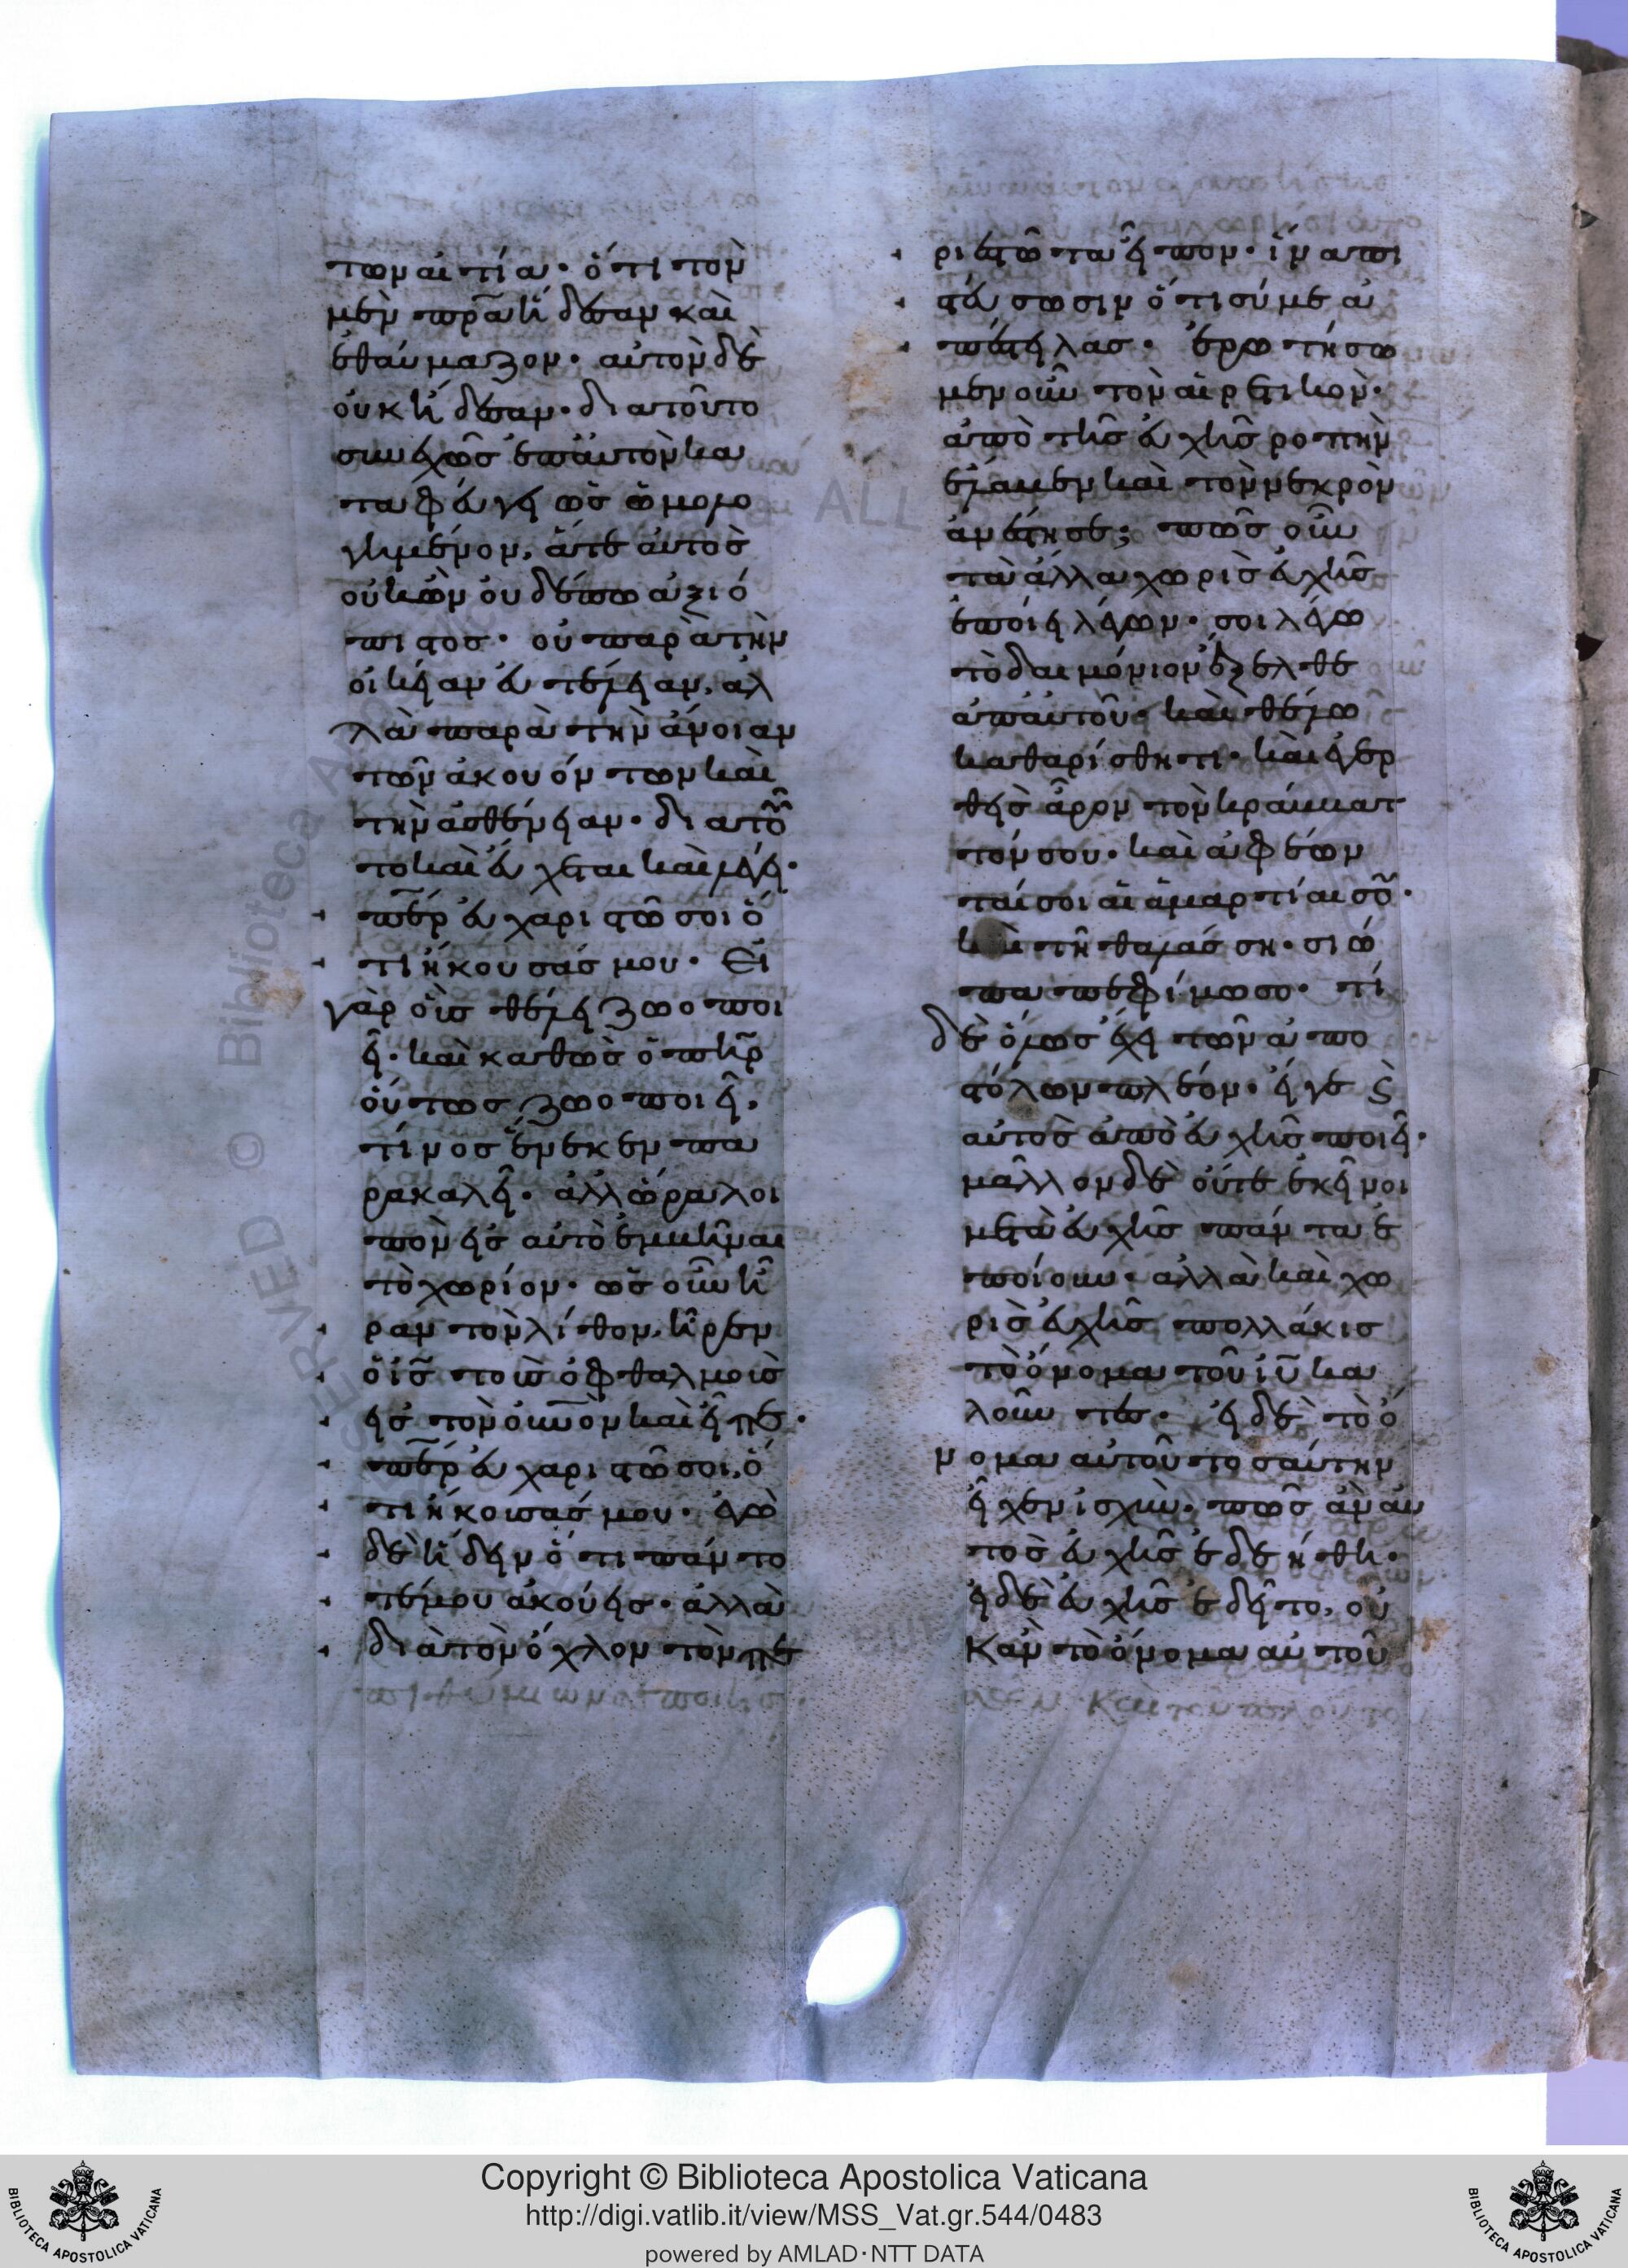 των αἰτία· ὅτι τὸν
μὲν πρ̅α ἤδεσαν καὶ
ἐθαύμαζον· αὐτὸν δὲ
οὐκ ἤδεσαν· διατοῦτο
συνεχῶς ἐπ' αὐτὸν κα
ταφεύγει ὡς ὡμολο
γημένον, ἅτε αὐτὸς
οὐκ ὢν οὐδέπω ἀξιό
πιστος· οὐ παρὰ τὴν
οἰκείαν εὐτέλειαν, ἀλ
λὰ παρὰ τὴν ἄνοιαν
τῶν ἀκουόντων καὶ
τὴν ἀσθένειαν· διατοῦ
το καὶ εὔχεται καὶ λέγει·
πε̅ρ εὐχαριστῶ σοι ὅ
τι ἤκουσάς μου· Εἰ
γὰρ οἷς θέλει ζωοποι
εῖ· καὶ καθὼς ὁ πη̅ρ
οὕτως ζωοποιεῖ,
τίνος ἕνεκεν πα
ρακαλεῖ· ἀλλ' ὥρα λοι
πὸν εἰς αὐτὸ ἐμβῆναι
τὸ χωρίον· ὡς οὖν ἦ
ραν τὸν λίθον, ἦρεν
ὁ ι̅ς τοὺς ὀφθαλμοὺς
εἰς τὸν ου̅νον καὶ εἶπε·
πε̅ρ εὐχαριστῶ σοι, ὅ
τι ἤκουσάς μου· ἐγὼ
δὲ ἤδειν ὅτι πάντο
τέ μου ἀκούεις· ἀλλὰ
διὰ τὸν ὄχλον τὸν πε
ριεστῶτα εἶπον· ἵνα πι
στεύσωσιν ὅτι σύ με ἀ
πέστειλας· ἐρωτήσω
μεν οὖν τὸν αἱρετικὸν·
ἀπὸ τῆς εὐχῆς ῥοπὴν
ἔλαβεν καὶ τὸν νεκρὸν
ἀνέστησε; πῶς οὖν
τὰ ἄλλα χωρὶς εὐχῆς
ἐποίει λέγων· σοι λέγω
τὸ δαιμόνιον ἔξελθε
ἀπ' αὐτοῦ· καὶ θέλω
καθαρίσθητι· καὶ ἐγερ
θεὶς ἆρον τὸν κράββατ
τόν σου· καὶ ἀφέων
ταί σοι αἱ ἁμαρτίαι σου·
καὶ τῆ θαλάσση· σιώ
πα πεφίμωσο· τί
δὲ ὅλως ἔχει τῶν ἀπο
στόλων πλέον· εἴγε καὶ
αὐτὸς ἀπὸ εὐχῆς ποιεῖ·
μᾶλλον δὲ οὔτε ἐκεῖνοι
μετὰ εὐχῆς πάντα ἐ
ποίουν· ἀλλὰ καὶ χω
ρὶς εὐχῆς πολλάκις
τὸ ὄνομα τοῦ ι̅υ κα
λοῦντες· εἰ δὲ τὸ ὄ
νομα αὐτοῦ τοσαύτην
εἶχεν ἰσχὺν· πῶς ἂν αὐ
τὸς εὐχῆς ἐδεήθη·
εἰ δὲ εὐχῆς ἐδεῖτο, οὐ
κ ἂν τὸ ὄνομα αὐτοῦ
Copyright © Biblioteca Apostolica Vaticana
http://digi.vatlib.it/view/MSS_Vat.gr.544/0483
powered by AMLAD·NTT DATA
BIBLIOTECA APOSTOLICA VATICANA
BIBLIOTECA APOSTOLICA VATICANA